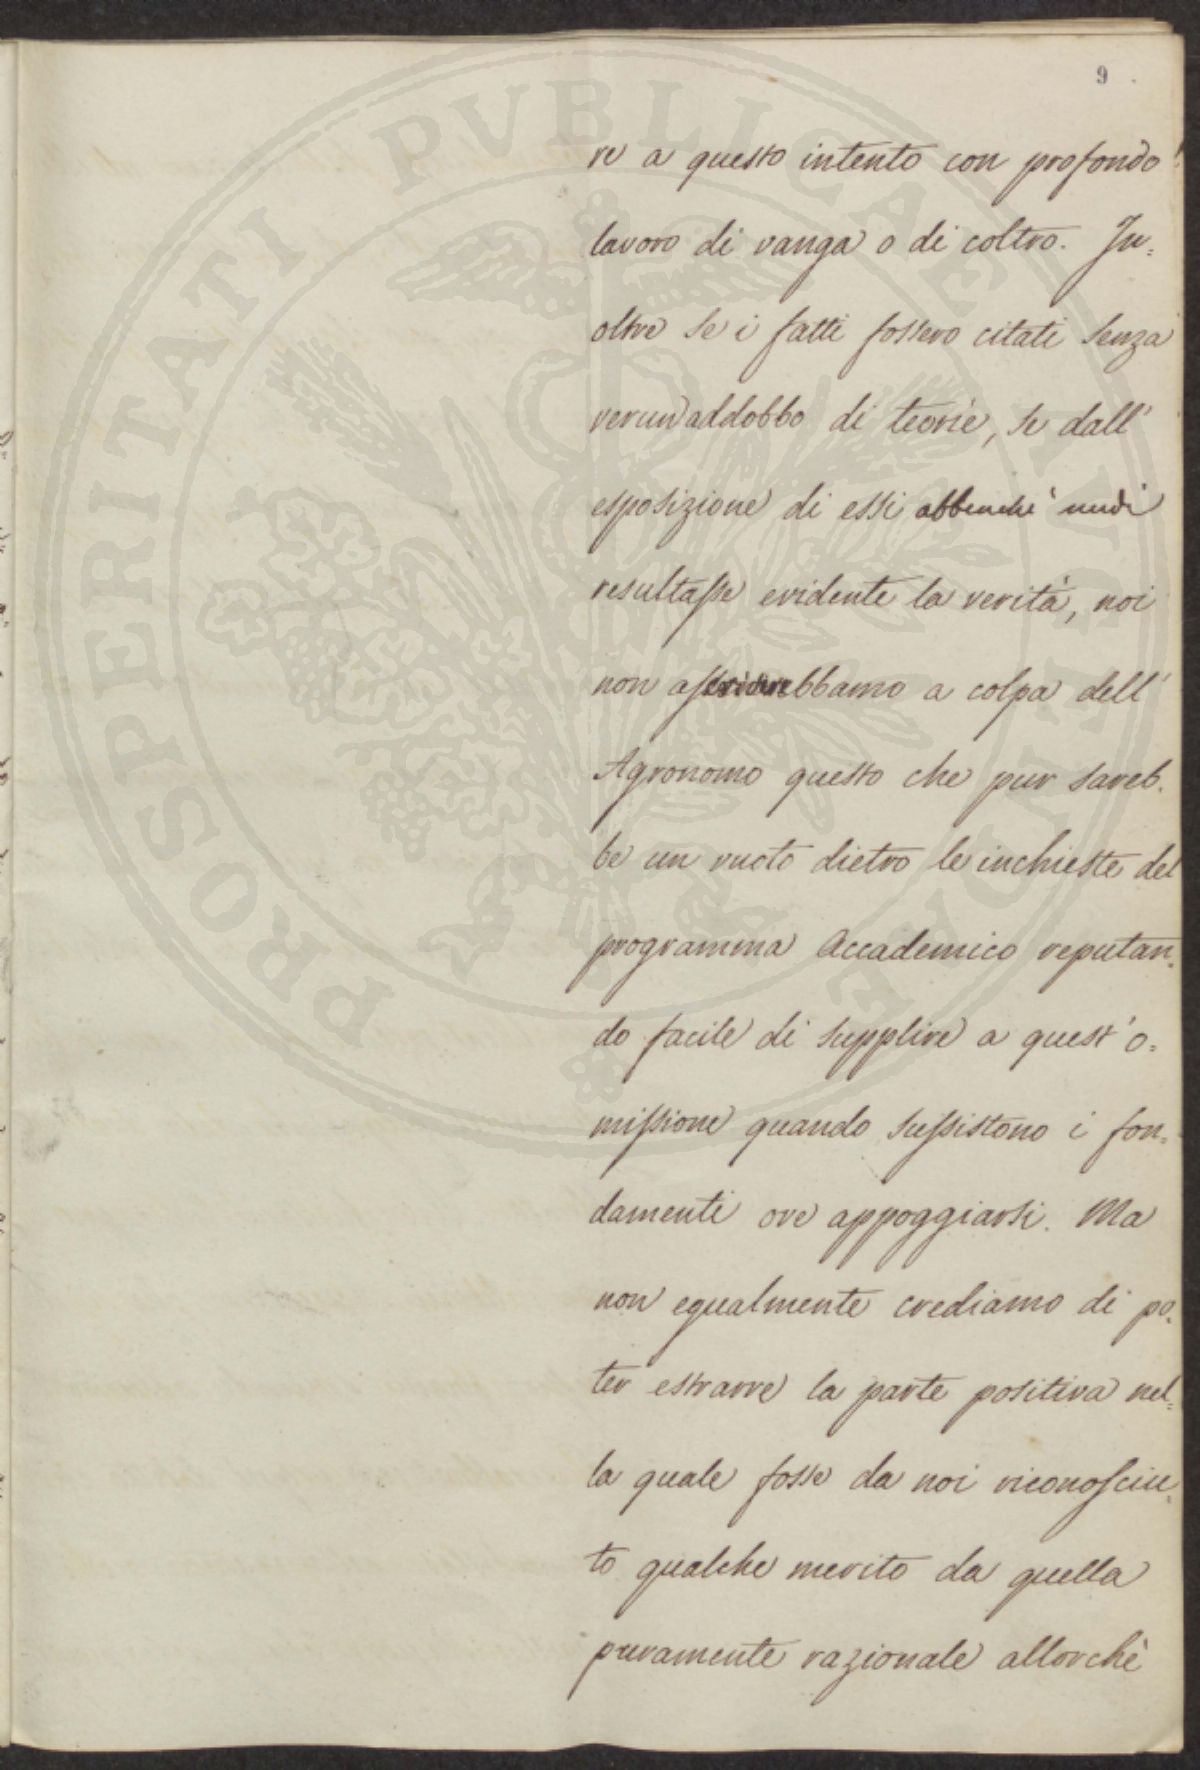 9
re a questo intento con profondo
lavoro di vanga o di coltro. In=
oltre se i fatti fossero citati senza
verun addobbo di teorie, se dall'
esposizione di essi abbenchè nudi
resultasse evidente la verità, noi
non ascriverebbamo a colpa dell'
Agronomo questo che pur sareb.
be un vuoto dietro le inchieste del
programma Accademico reputan=
do facile di supplire a quest'o=
missione quando sussistono i fon=
damenti ove appoggiarsi. Ma
non egualmente crediamo di po=
ter estrarre la parte positiva nel=
la quale fosse da noi riconosciu=
to qualche merito da quella
puramente razionale allorchè
PROSPERITATI PVBLICAE AVGENDAE